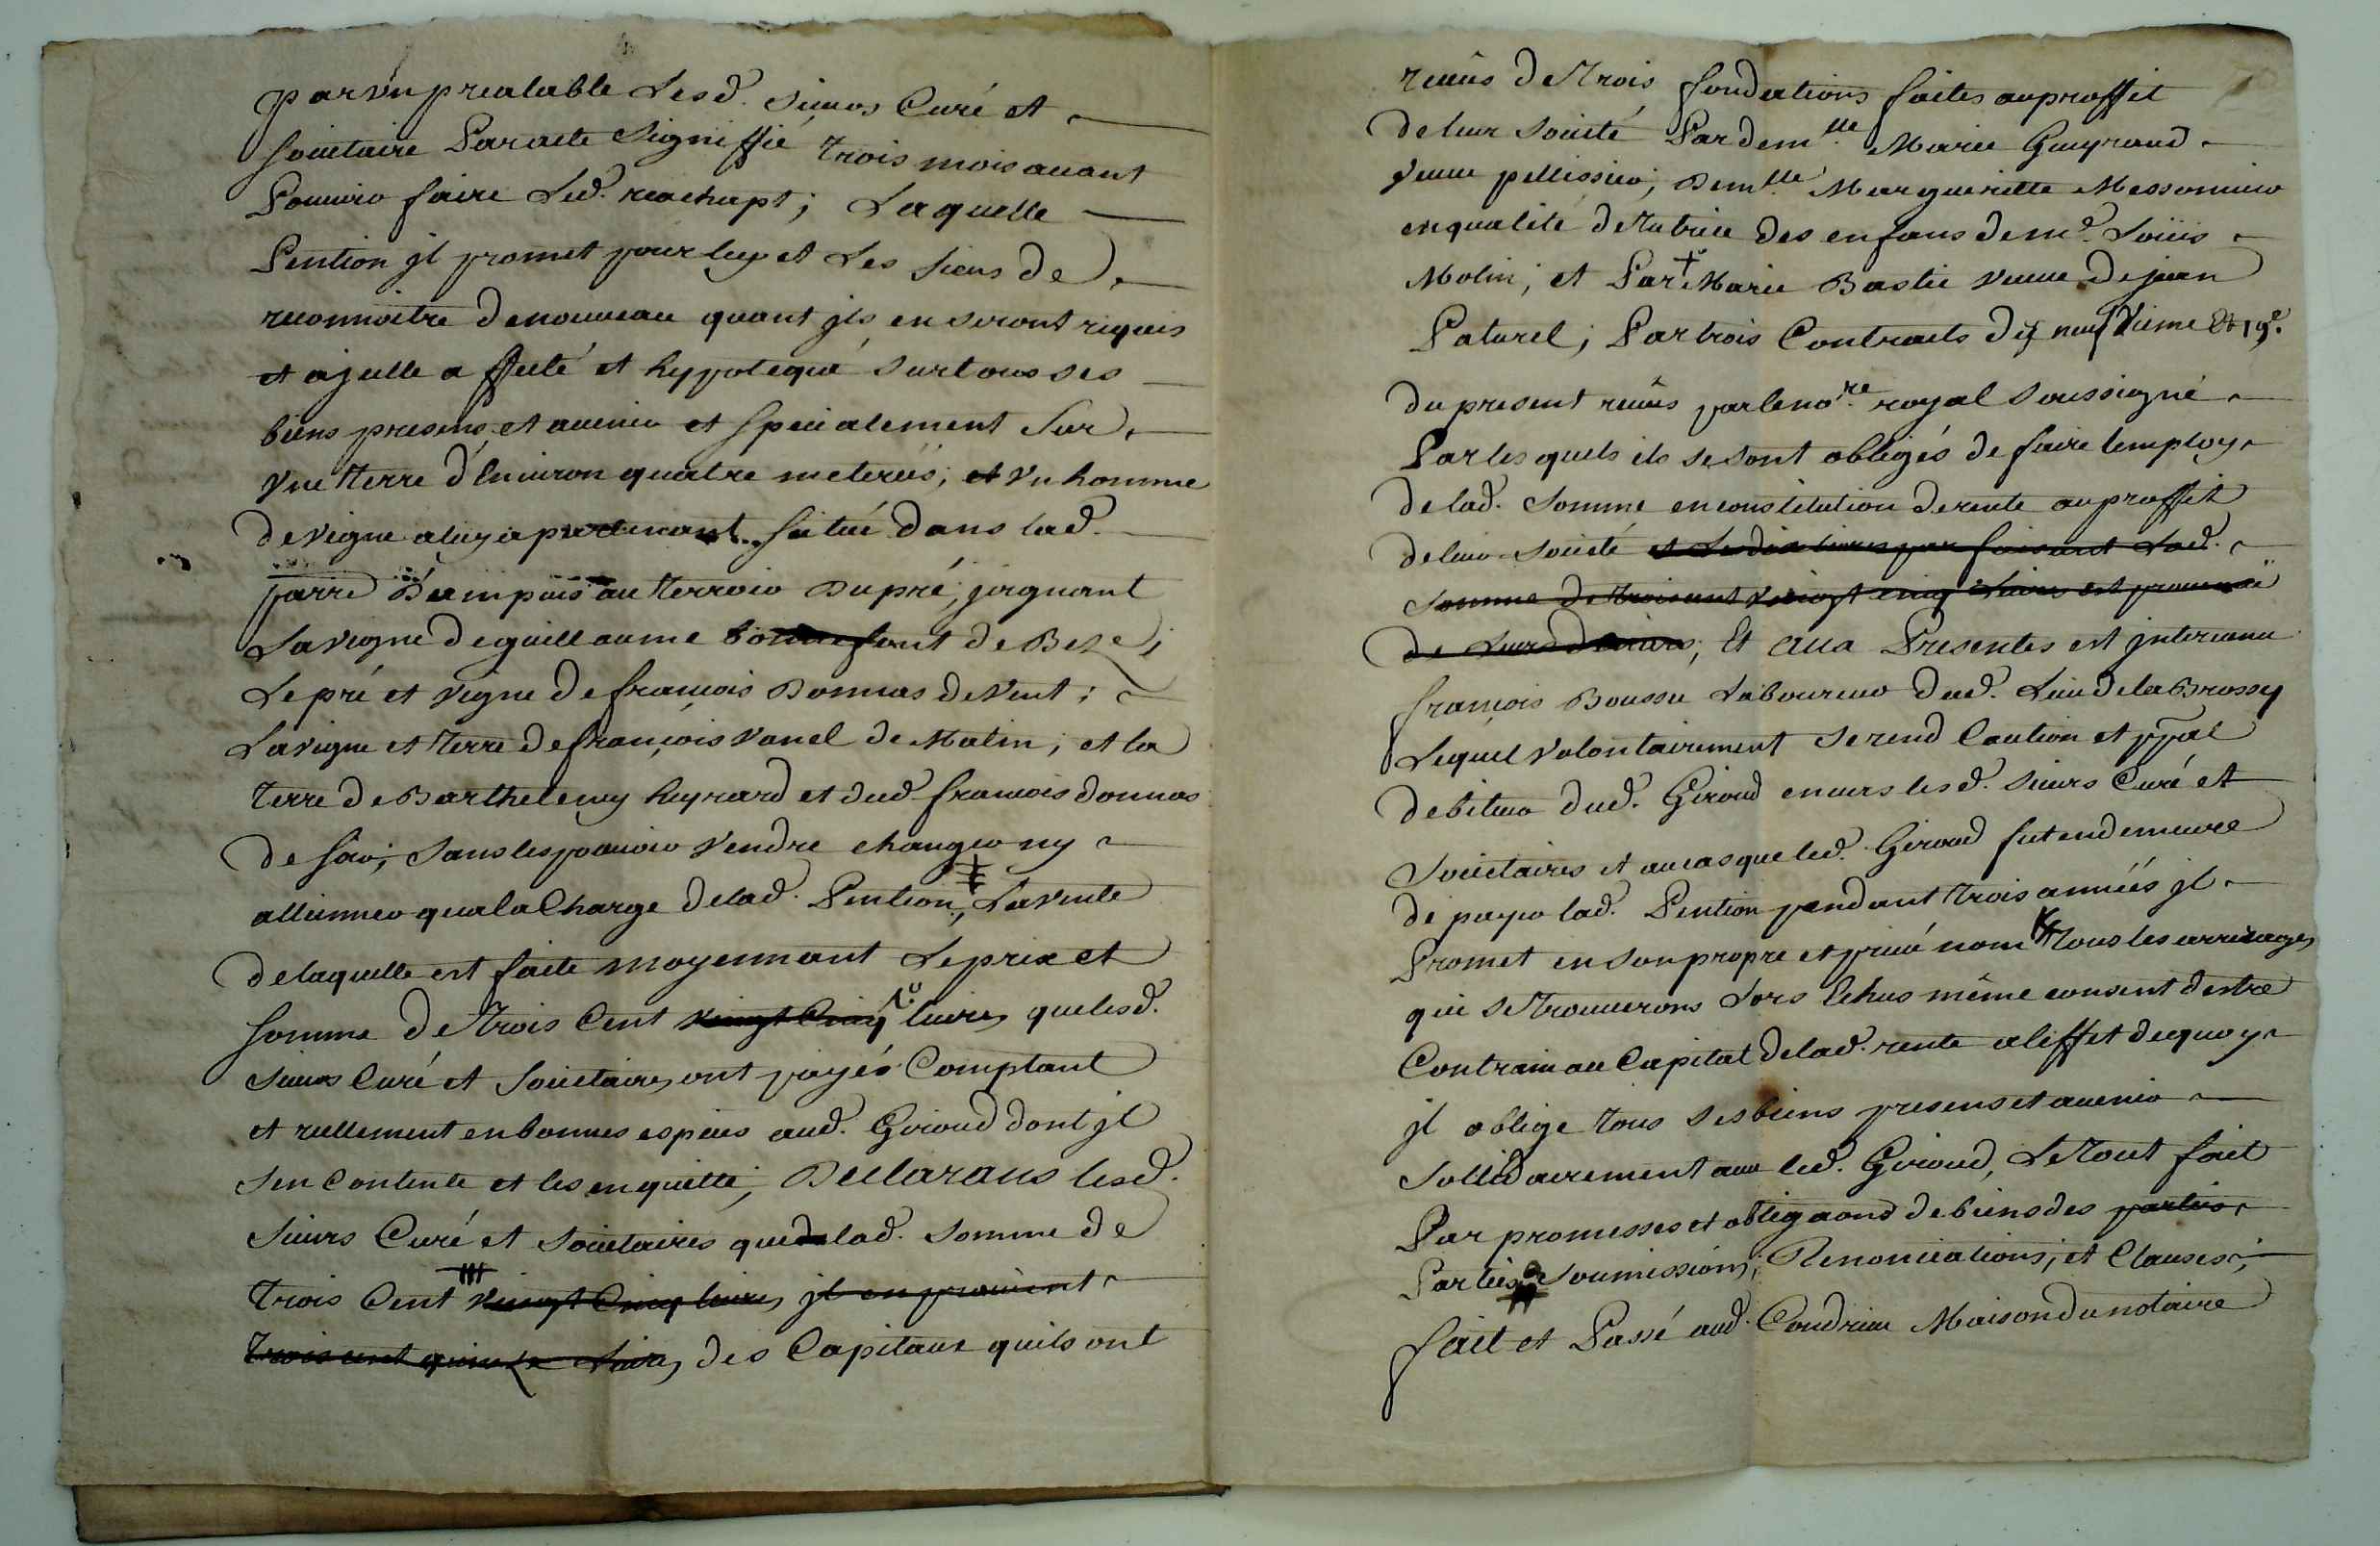 par un prealable Lesd. sieurs Curé et
sociétaire Par acte Signiffié trois mois auant
Pouuoir faire Led. reachapt; Laquelle
Pention jl promet pour luy et Les siens de
reconnoitre de nouueau quant jls en seront requis
et a jcelle affecté et hypotequé sur tous ses
biens presens et auenir et specialement Sur
Vne terre d'Enuiron quatre meterées, et vn homme
de vigne a luy apartenant situé dans lad.
parre D'ampuis au terroir Dupré, joignant
La vigne de guillaume bonnefont de Bise;
Le pré et vigne de françois Donnas de Vent;
La vigne et terre de françois Vanel de Matin; et la
terre de Barthelemy heyrard et dud. francois donnas
de soir; sans les pouuoir Vendre changer ny
alliener qu'a la Charge de lad. Pention, La vente
de laquelle est faite moyennant Le prix et
somme de trois Cent vingt Cinq liures que lesd.
sieurs Curé et societaires ont payés Comptant
et reellement en bonnes especes aud. Giroud dont jl
s'en Contente et les en quitte; Declarans lesd.
sieurs Curé et societaires que de lad. somme de
trois Cent vingt Cinq liures jl en prouient
trois cent quinze liures des Capitaux quils ont
receus de trois fondations faites au proffit
de leur societé Par dem.lle Marie Guyraud
veuue pellissier, Dem.lle Marguerite Messonnier
en qualité de tutrice des enfans de m.e Loüis
Molin; et Par Marie Bastie veuue de jean
Paturel; Par trois Contracts des neuf vieme Et 19.e
du present receus par le no.re royal soussigné
Par lesquels ils se sont obligés de faire lemploy
de lad. somme en constitution de rente au proffit
de leur societé et Les dix liures par faisant Lad.
somme de trois cent vingt cinq liures est prouenüe
de Leurs deniers; Et aux Presentes est jnteruenu
françois Boussu Laboureur dud. Lieu de la Brossy
Lequel volontairement se rend Caution et ppal
debiteur dud. Giroud enuers lesd. sieurs Curé et
Sociétaires et au cas que led. Giroud fut en demeure
de payer lad. Pention pendant trois années jl
Promet en son propre et priué nom tous les arrerages
qui se trouuerons Lors Echus même consent destre
Contrain au Capital de lad. rente a l'effet de quoy
jl oblige tous ses biens presens et auenir
sollidairement auec led. Giroud, Le tout fait
Par promesses et obligaons de biens des parties
Parties soumissions, Renonciations, et Clauses,
fait et Passé aud. Condrieu Maison du notaire